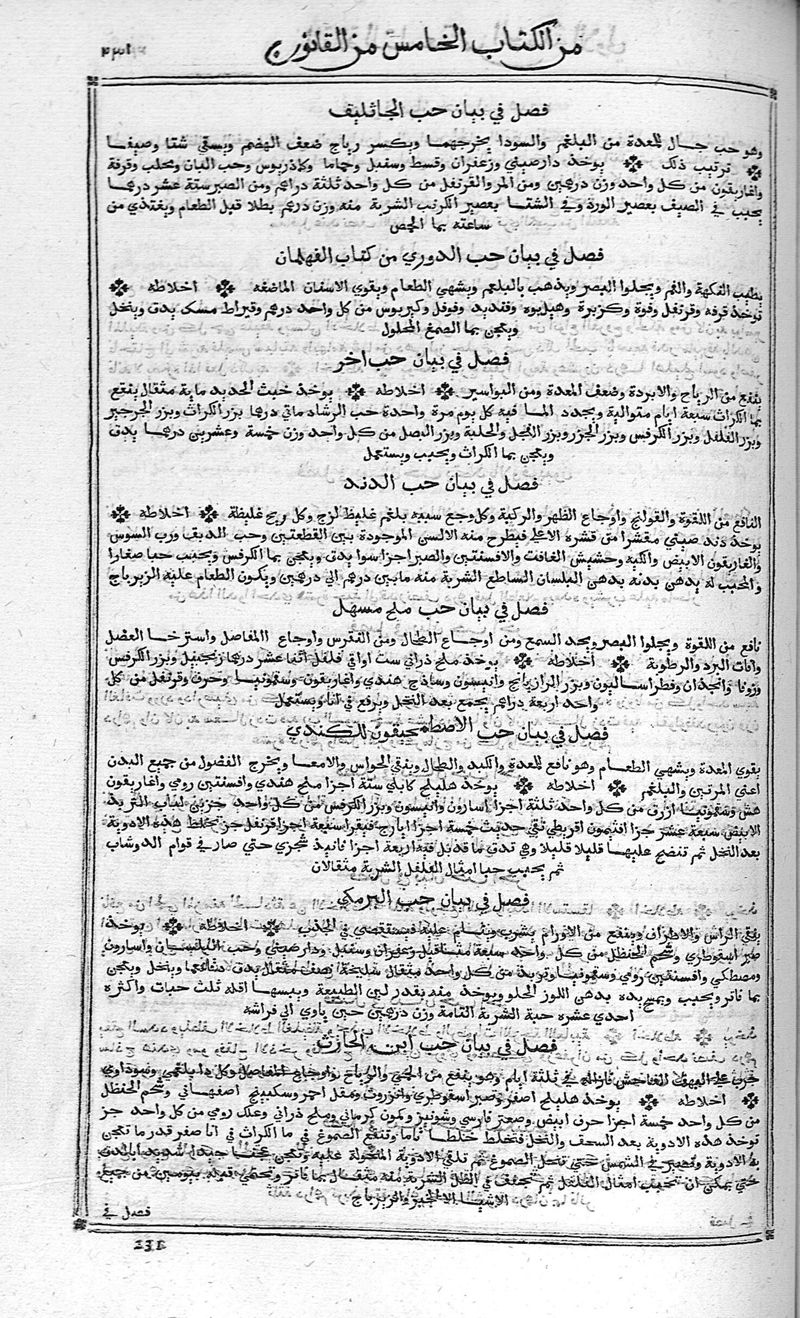 من الكتاب الخامس من القانون
فصل في بيان حب الجاثليف
وهو حب جال للمعدة من البلغم والسودا يخرجهما ويكسر رياح ضعف الهضم ويسقي شتا وصيفا
ترتيب ذلك يوخذ دارصيني وزعفران وقسط وسنبل وحماما وكاذريوس وحب البان ومحلب وقرفة
واغاريقون من كل واحد وزن درهمين ومن المر والقرنفل من كل واحد ثلثة دراهم ومن الصبر ستة عشر درهما
يحبب في الصيف بعصير الورد وفي الشتا بعصير الكرنب الشربة منه وزن درهم بطلا قبل الطعام ويغتذي من
ساعته بما الحمص
فصل في بيان حب الدوري من كتاب القهلمان
يطيب النكهة والفم ويجلوا البصر ويذهب بالبلغم ويشهي الطعام ويقوي الاسنان الماضغه اخلاطه
توخذ قرفه وقرنفل وقوة وكزبرة وهيلبوه وقنديد وفوفل وكيربوس من كل واحد درهم وقيراط مسك يدق وينخل
ويعجن بما الصمغ المحلول
فصل في بيان حب اخر
ينفع من الرياح والابردة وضعف المعدة ومن البواسير اخلاطه يوخذ خبث الحديد ماية مثقال ينقع
بما الكراث سبعة ايام متوالية ويجدد الما فيه كل يوم مرة واحدة حب الرشاد ماتي درهما بزر الكراث وبزر الجرجير
وبزر الفلفل وبزر الكرفس وبزر الجزر وبزر الفجل والحلبة وبزر البصل من كل واحد وزن خمسة وعشرين درهما يدق
ويعجن بما الكراث ويحبب ويستعمل
فصل في بيان حب الدند
النافع من اللقوة والقولنج واوجاع الظهر والركبة وكل وجع سببه بلغم غليظ لزج وكل ريح غليظة اخلاطه
يوخذ دند صيني مقشرا من قشره الاعلي فيطرح منه الالسن الموجودة بين القطعتين وحب الدبق ورب السوس
والغاريقون الابيض والكليه وحشيش الغافت والافسنتين والصبر اجزا سوا يدق ويعجن بما الكرفس ويحبب حبا صغارا
والمحبب له يدهن يدنه بدهن البلسان الساطع الشربة منه مابين درهم الي درهمين ويكون الطعام عليه الزيرباج
فصل في بيان حب ملح مسهل
نافع من اللقوة ويجلوا البصر ويحد السمع ومن اوجاع الطحال ومن النقرس واوجاع االمفاصل واسترخا العضل
وافات البرد والرطوبة اخلاطه يوخذ ملح ذراني ست اواقي فلفل اثنا عشر درهما زنجبيل وبزر الكرفس
وزوفا وانجدان وفطراساليون وبزر الرازيانج وانيسون وساذج هندي واغاريقون وسقمونيا وحرف وقرنفل من كل
واحد اربعة دراهم يجمع بعد النخل ويرفع في انا ويستعمل
فصل في بيان حب الاصطمحيقون للكندي
يقوي المعدة ويشهي الطعام وهو نافع للمعدة والكبد والطحال وينقي الحواس والامعا ويخرج الفضول من جميع البدن
اعني المرتين والبلغم اخلاطه يوخذ هليلج كابلي ستة اجزا ملح هندي وافسنتين رومي واغاريقون
هش وسقمونيا ازرق من كل واحد ثلثة اجزا اسارون وانيسون وبزر الكرفس من كل واحد جزين لباب التربد
الابيض سبعة عشر جزا افتيمون اقريطي نقي حديث خمسة اجزا ايارج فيقرا سبعة اجزا قرنفل جز تخلط هذه الادوية
بعد النخل ثم تنضح عليها قليلا قليلا وهي تدق ما قد بل فيه اربعة اجزا فانيذ شجزي حتي صار في قوام الدوشاب
ثم يحبب حبا امثال الفلفل الشربة مثقالان
فصل في بيان حب البرمكي
ينقي الراس والاطراف وينفع من الاورام يشرب وينام عليه فيستقصي في الجذب اخلاطه يوخذ
صبر اسقوطري وشحم الحنظل من كل واحد سبعة مثاقيل زعفران وسنبل ودارصيني وحب البلسان واسارون
ومصطكي وافسنتين رومي وسقمونيا وتربد من كل واحد مثقال سليخة نصف مثقال يدق وينخل ويعجن
بما فاتر ويحبب ويمسح يده بدهن اللوز الحلو ويوخذ منه بقدر لين الطبيعة ويبسها اقله ثلث حبات واكثره
احدي عشره حبة الشربة التامة وزن درهمين حين ياوي الي فراشه
فصل في بيان حب ابن الحارث
جرب علي البهق الفاحش فازاله في ثلثة ايام وهو ينفع من الحمي والرياح واوجاع المفاصل وكل دا بلغمي وسوداوي
اخلاطه يوخذ هليلج اصفر وصبر اسقوطري وانزروت ومقل احمر وسكبينج اصفهاني وشحم الحنظل
من كل واحد خمسة اجزا حرف ابيض وصعتر فارسي وشونيز وكمون كرماني وملح ذراني وعلك رومي من كل واحد جز
توخذ هذه الادوية بعد السحق والنخل فتخلط خلطا تاما وتنقع الصموغ في ما الكراث في انا صفر قدر ما تعجن
به الادوية وتصير في الشمس حتي تنحل الصموغ ثم تلقي الادوية المنخولة عليه وتعجن عجنا جيدا شديدا بالدق
حتي يمكن ان تحبب امثال الفلفل ثم يجفف في الظل الشربة منه مثقال بما فاتر وتحمي قبله بيومين من جميع
الاشيا الا الخبز والزيرباج
فصل في